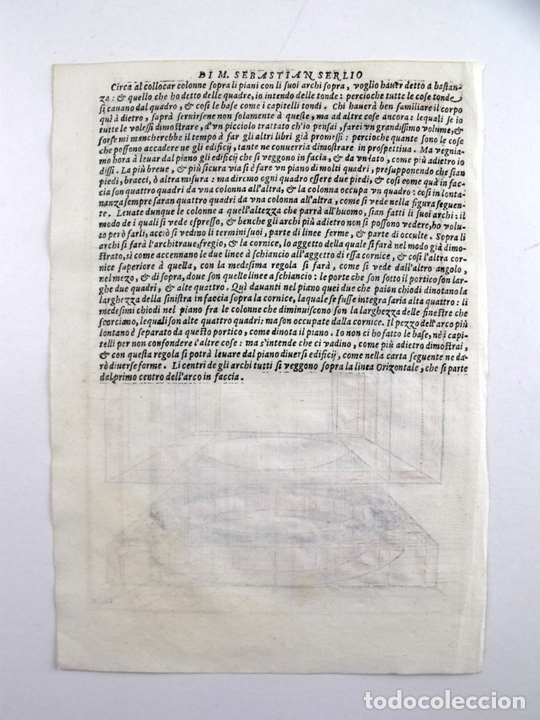 DI M. SEBASTIAN SERLIO
Circa al collocar colonne sopra li piani con li suoi archi sopra, voglio hauer detto a bastan-
za: & quello che ho detto delle quadre, io intendo delle tonde: percioche tutte le cose tonde
si cauano dal quadro, & cosi le base come i capitelli tondi. Chi hauerà ben familiare il corpo
quà adietro, saprà seruirsene non solamente à queste, ma ad altre cose ancora: lequali se io
tutte le volessi dimostrare, d'vn picciolo trattato ch'io pensai, farei vn grandissimo volume, &
forse mi mancherebbe il tempo à far gli altri libri già promessi: percioche quante sono le cose
che possono accadere ne gli edificij, tante ne conuerria dimostrare in prospettiua. Ma vegnia-
mo hora à leuar dal piano gli edificij che si veggono in facia, & da vn lato, come più adietro io
dissi. La più breue, & più sicura via si è fare vn piano di molti quadri, presupponendo che sian
piedi, bracci, ò altra misura: ma diremo ogni quadro essere due piedi, & cosi come quà in fac-
cia son quattro quadri da vna colonna all'altra, & la colonna occupa vn quadro: cosi in lonta-
nanza sempre saran quattro quadri da vna colonna all'altra, come si vede nella figura seguen-
te. Leuate dunque le colonne a quell'altezza che parrà all'huomo, sian fatti li suoi archi: il
modo de i quali si vede espresso, & benche gli archi più adietro non si possono vedere, ho volu-
to però farli, acciò si vedino li termini suoi, parte di linee ferme, & parte di occulte. Sopra li
archi si farà l'architraue, fregio, & la cornice, lo aggetto della quale si farà nel modo già dimo-
strato, sì come accennano le due linee à schiancio all'aggetto di essa cornice, & cosi l'altra cor-
nice superiore à quella, con la medesima regola si farà, come si vede dall'altro angolo,
nel mezo, & di sopra, doue son quelle linee a schiancio: le porte che son sotto il portico son lar-
ghe due quadri, & alte quattro. Quà dauanti nel piano quei due che paion chiodi dinotano la
larghezza della finistra in faccia sopra la cornice, laquale se fusse integra saria alta quattro: li
medesimi chiodi nel piano fra le colonne che diminuiscono son la larghezza delle finestre che
scorciano, lequali son alte quattro quadri: ma son occupate dalla cornice. Il pezzo dell'arco più
lontano è separato da questo portico, come dinota il piano. Io non ci ho fatto le base, nè i capi-
telli per non confondere l'altre cose: ma s'intende che ci vadino, come più adietro dimostrai,
& con questa regola si potrà leuare dal piano diuersi edificij, come nella carta seguente ne da-
rò diuerse forme. Li centri de gli archi tutti si veggono sopra la linea Orizontale, che si parte
dal primo centro dell'arco in faccia.
todocoleccion.net